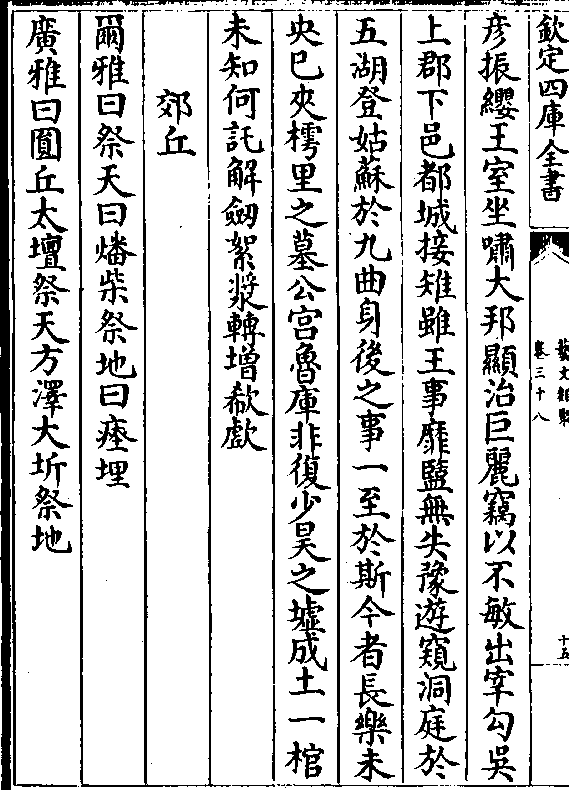 欽定四庫全書
藝文類聚
卷三十八
十五
彦振纓王室坐嘯大邦顯治巨麗竊以不敏出宰勾吳
上郡下邑都城接雉雖王事靡盬無失豫遊窺洞庭於
五湖登姑蘇於九曲身後之事一至於斯今者長樂未
央已夾樗里之墓公宫魯庫非復少昊之墟成土一棺
未知何託解劒絮漿轉增欷歔
郊丘
爾雅曰祭天曰燔柴祭地曰瘞埋
廣雅曰圜丘太壇祭天方澤大圻祭地